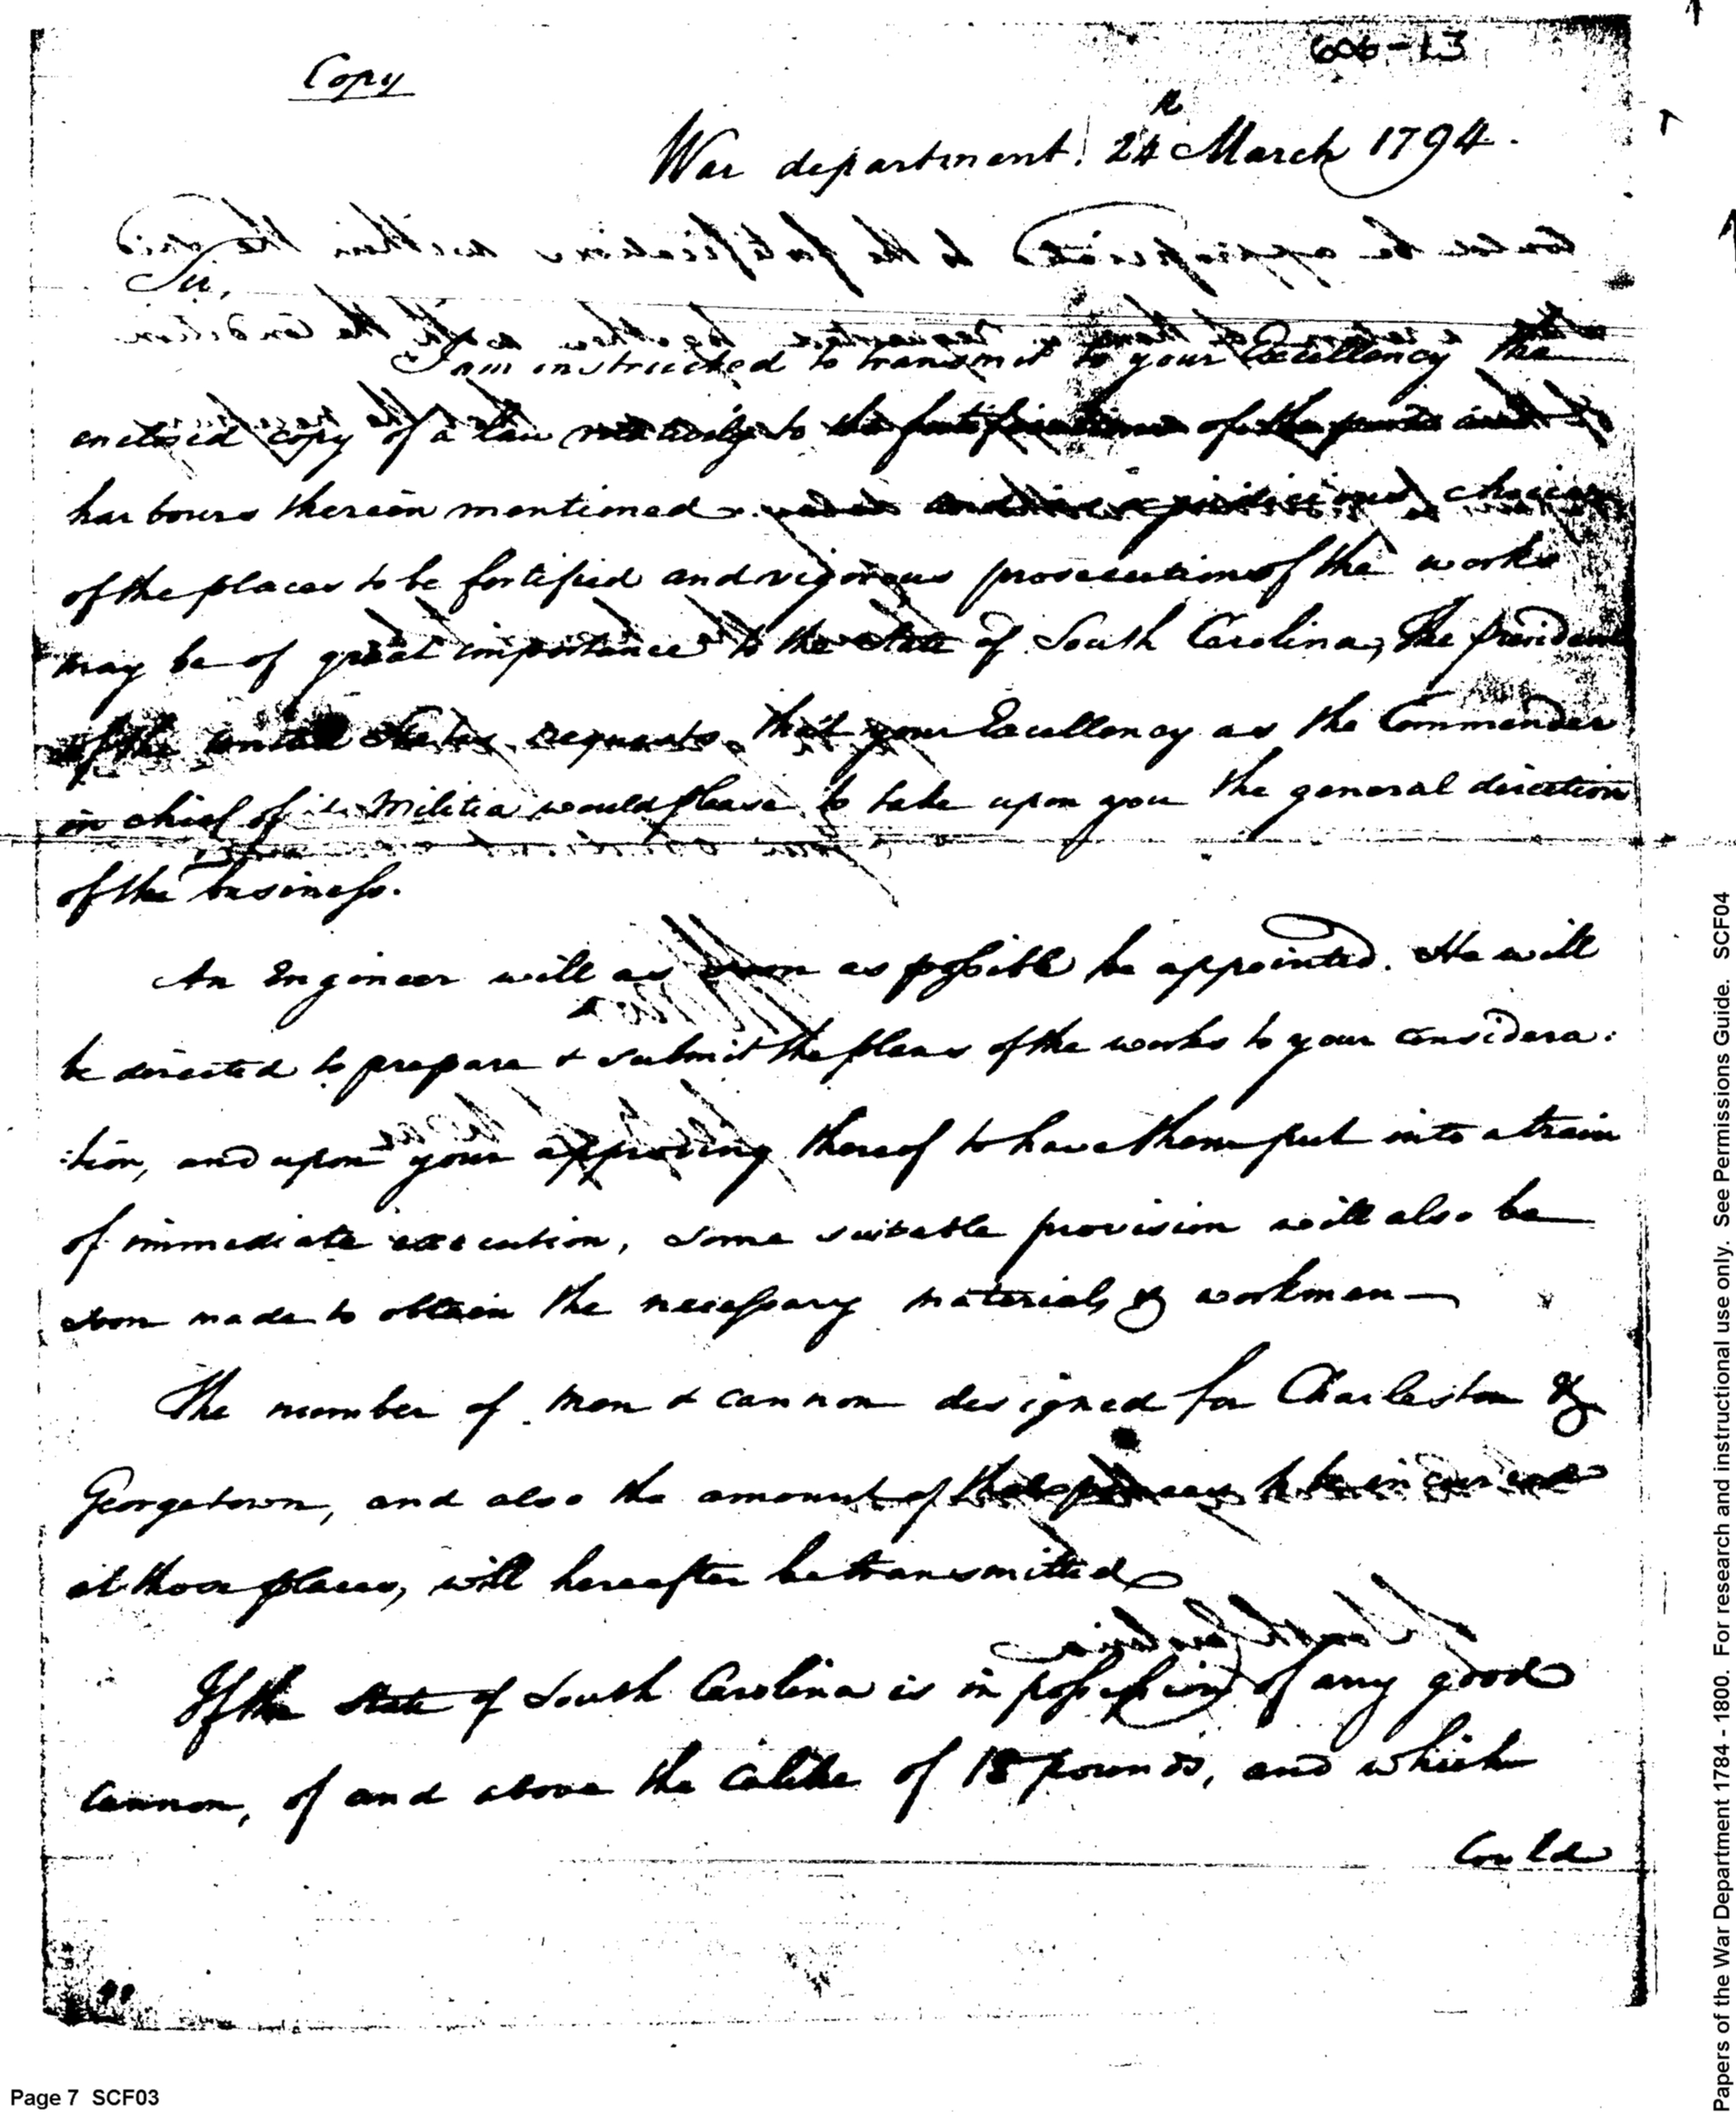 606-13
Copy
War department! 24th March 1794.
Sir,
I am instructed to transmit to your Excellency the
enclosed copy of a law relatively to the fortifications of the ports and
harbours therein mentioned. as a judicious choice
of the places to be fortified and vigorous prosecution of the works
may be of great importance to the State of South Carolina, The President
of the united States requests that your Excellency as the Commander
in chief of its Militia would please to take upon you the general direction
of the business.
An Engineer will as soon as possible be appointed. He will
be directed to prepare & submit the plans of the works to your considera:
:tion, and upon your approving thereof to have them put into a train
of immediate execution, some suitable provision will also be
soon made to obtain the necessary materials & workmen—
The number of men & cannon designed for Charleston &
Georgetown, and also the amount of the expences to be incurred
at those places, will hereafter be transmitted
If the State of South Carolina is in possession of any good
Cannon, of and above the calibre of 18 pounds, and which
Could
Page 7 SCF03
Papers of the War Department 1784 - 1800. For research and instructional use only. See Permissions Guide. SCF04